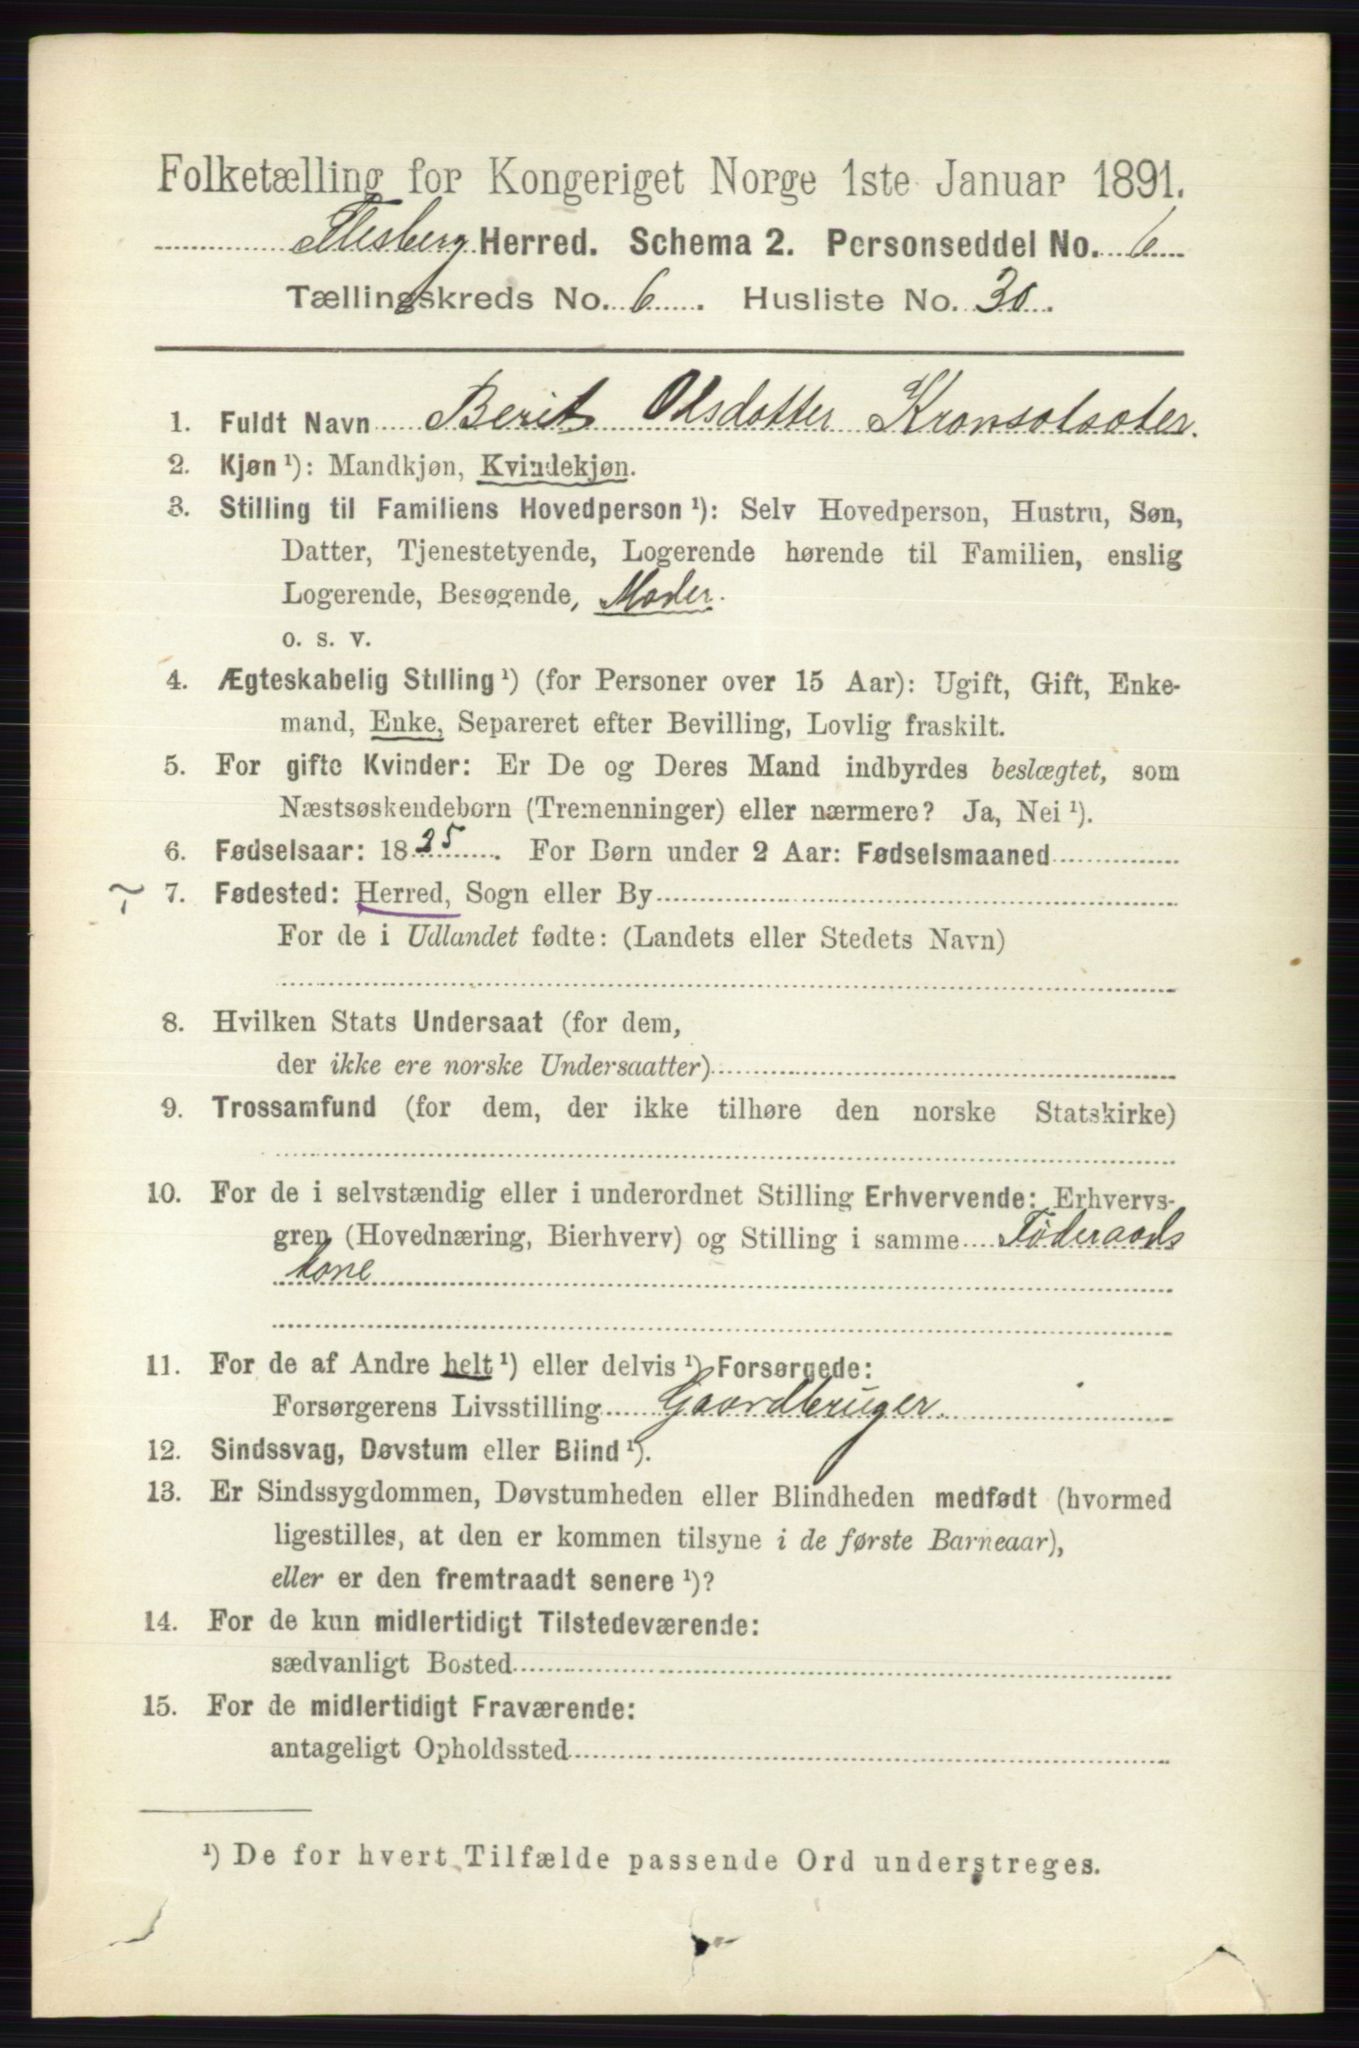 Folketælling for Kongeriget Norge 1ste Januar 1891.
Flesberg Herred. Schema 2. Personseddel No. 6
Tællingskreds No. 6. Husliste No. 30.
1. Fuldt Navn Berit Olsdatter
2. Kjøn¹): Mandkjøn, Kvindekjøn.
3. Stilling til Familiens Hovedperson¹): Selv Hovedperson, Hustru, Søn,
Datter, Tjenestetyende, Logerende hørende til Familien, enslig
Logerende, Besøgende, Moder.
o. s. v.
4. Ægteskabelig Stilling¹) (for Personer over 15 Aar): Ugift, Gift, Enke-
mand, Enke, Separeret efter Bevilling, Lovlig fraskilt.
5. For gifte Kvinder: Er De og Deres Mand indbyrdes beslægtet, som
Næstsøskendebørn (Tremenninger) eller nærmere? Ja, Nei¹).
6. Fødselsaar: 1825. For Børn under 2 Aar: Fødselsmaaned
7. Fødested: Herred, Sogn eller By
For de i Udlandet fødte: (Landets eller Stedets Navn)
8. Hvilken Stats Undersaat (for dem,
der ikke ere norske Undersaatter)
9. Trossamfund (for dem, der ikke tilhøre den norske Statskirke)
10. For de i selvstændig eller i underordnet Stilling Erhvervende: Erhvervs-
gren (Hovednæring, Bierhverv) og Stilling i samme Føderaads
kone
11. For de af Andre helt¹) eller delvis¹) Forsørgede:
Forsørgerens Livsstilling Gaardbruger.
12. Sindssvag, Døvstum eller Blind¹).
13. Er Sindssygdommen, Døvstumheden eller Blindheden medfødt (hvormed
ligestilles, at den er kommen tilsyne i de første Barneaar),
eller er den fremtraadt senere¹)?
14. For de kun midlertidigt Tilstedeværende:
sædvanligt Bosted
15. For de midlertidigt Fraværende:
antageligt Opholdssted
¹) De for hvert Tilfælde passende Ord understreges.